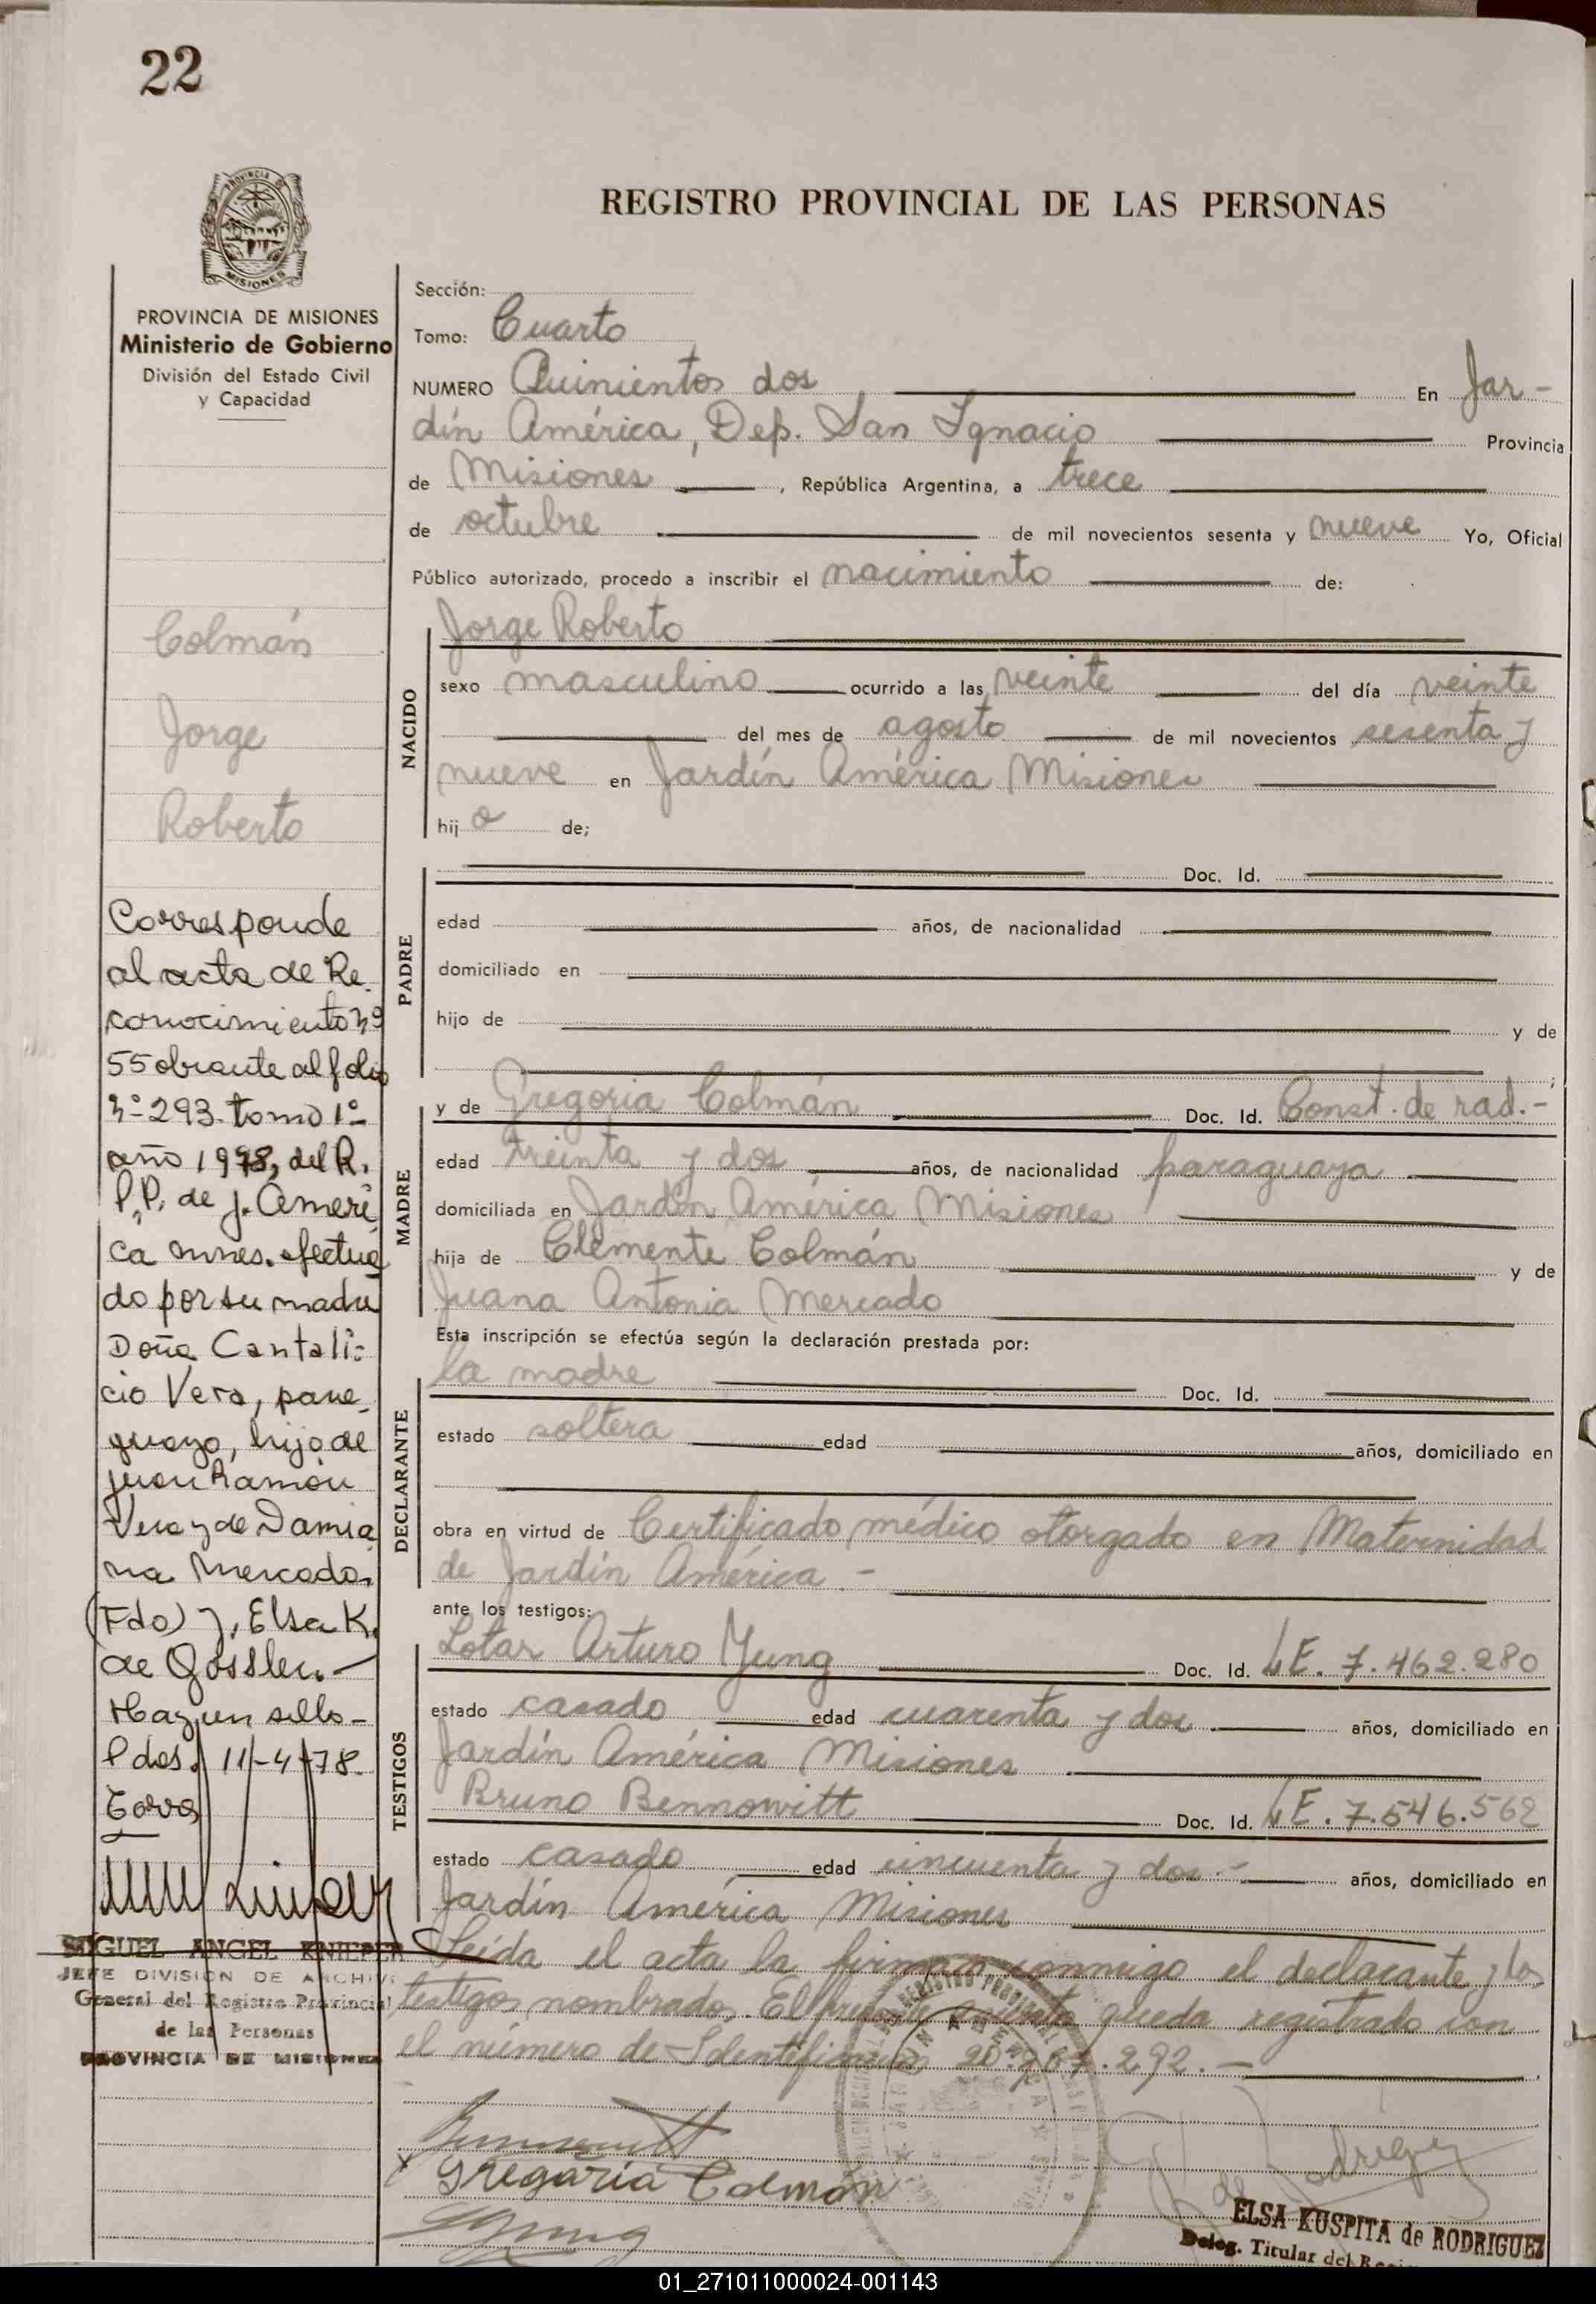 22
PROVINCIA
MISIONES
PROVINCIA DE MISIONES
Ministerio de Gobierno
División del Estado Civil
y Capacidad
Colmán
Jorge
Roberto
Corresponde
al acta de Re-
conocimiento nº
55 obrante al folio
nº 293. tomo 1º
año 1978, del R.
P.P. de J. Améri
ca mnes. efectua
do por su madre
Doña Cantali-
cio Vera, para-
guayo, hijo de
Juan Ramón
Vera y de Damia
na Mercado.
(Fdo) J. Elsa K.
de
Hay un sello-
Pdas. 11-4-78.
MIGUEL ANGEL KNIEPER
JEFE DIVISION DE ARCHIV
General del Registro Provincial
de las Personas
PROVINCIA DE MISIONES
REGISTRO PROVINCIAL DE LAS PERSONAS
Sección:
Tomo: Cuarto
NUMERO Quinientos dos En Jar-
dín América, Dep. San Ignacio Provincia
de Misiones, República Argentina, a trece
de octubre de mil novecientos sesenta y nueve Yo, Oficial
Público autorizado, procedo a inscribir el nacimiento de:
NACIDO
Jorge Roberto
sexo masculino ocurrido a las veinte del día veinte
del mes de agosto de mil novecientos sesenta y
nueve en Jardín América Misiones
hijo de;
PADRE
Doc. Id.
edad años, de nacionalidad
domiciliado en
hijo de y de
MADRE
y de Gregoria Colmán Doc. Id. Const. de rad.-
edad treinta y dos años, de nacionalidad paraguaya
domiciliada en Jardín América Misiones
hija de Clemente Colmán y de
Juana Antonia Mercado
Esta inscripción se efectúa según la declaración prestada por:
DECLARANTE
la madre Doc. Id.
estado soltera edad años, domiciliado en
obra en virtud de Certificado médico otorgado en Maternidad
de Jardín América.-
ante los testigos:
TESTIGOS
Lotar Arturo Yung Doc. Id. L.E. 7.462.280
estado casado edad cuarenta y dos años, domiciliado en
Jardín América Misiones
Bruno Bennowitt Doc. Id. L.E. 7.546.562
estado casado edad cincuenta y dos.- años, domiciliado en
Jardín América Misiones
Leída el acta la firman conmigo el declarante y los
testigos nombrados. El presente queda registrado con
el número de Identificación 292.-
Gregaria Colmán
ELSA KUSPITA de RODRIGUEZ
Deleg. Titular del
01_271011000024-001143